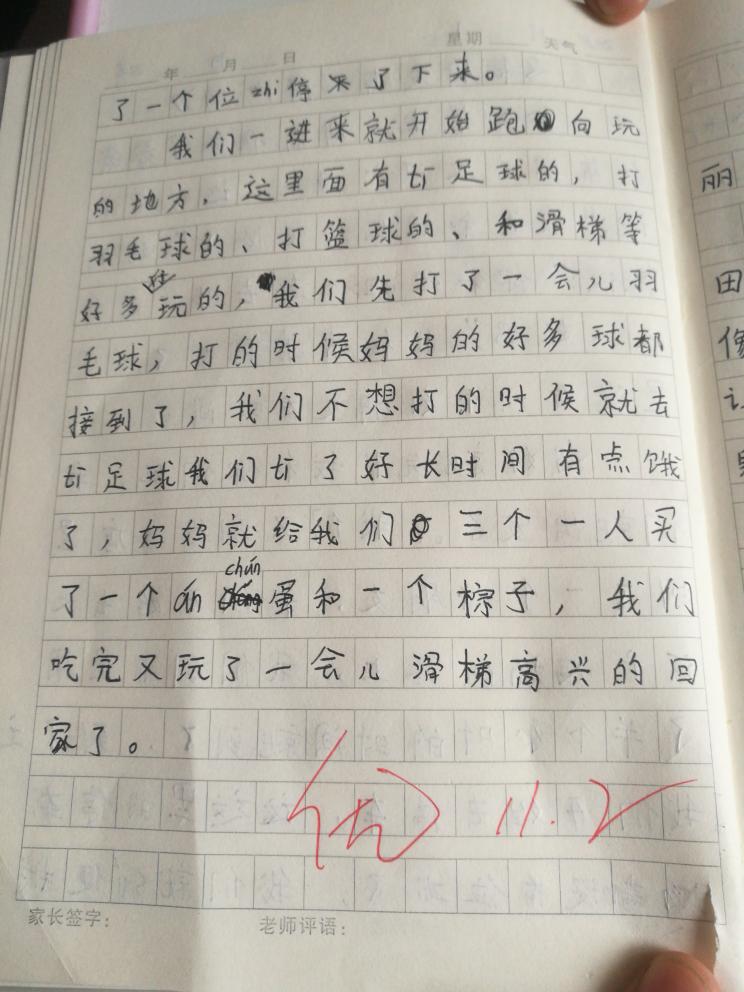 年 月 日 星期 天气
了一个位zhi停来了下来。
我们一进来就开始跑向玩
的地方，这里面有ti足球的，打
羽毛球的、打篮球的、和滑梯等
好多玩的，我们先打了一会儿羽
毛球，打的时候妈妈的好多球都
接到了，我们不想打的时候就去
ti足球我们ti了好长时间有点饿
了，妈妈就给我们三个一人买
了一个án chún蛋和一个粽子，我们
吃完又玩了一会儿滑梯高兴的回
家了。
优 11.2
家长签字： 老师评语：
丽
田
像